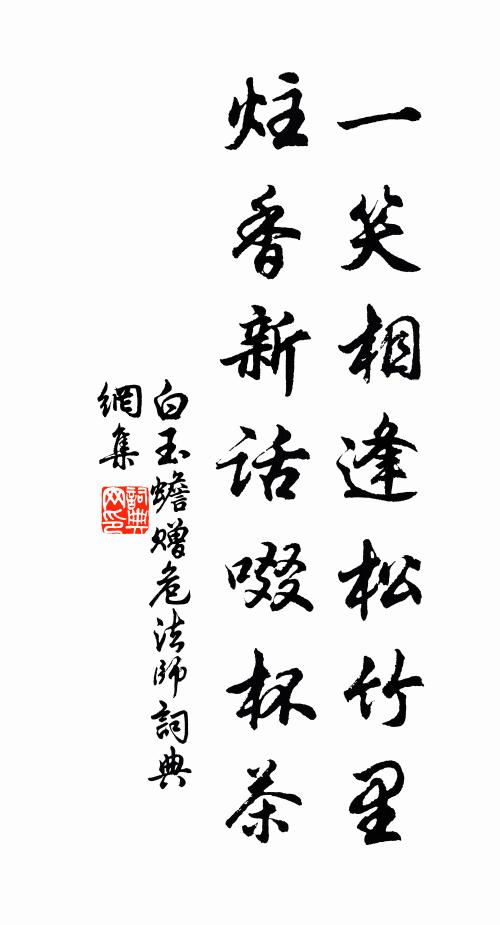 一笑相逢松竹里
炷香新话啜杯茶
白玉蟾赠危法師詞典
網集
詞典网印